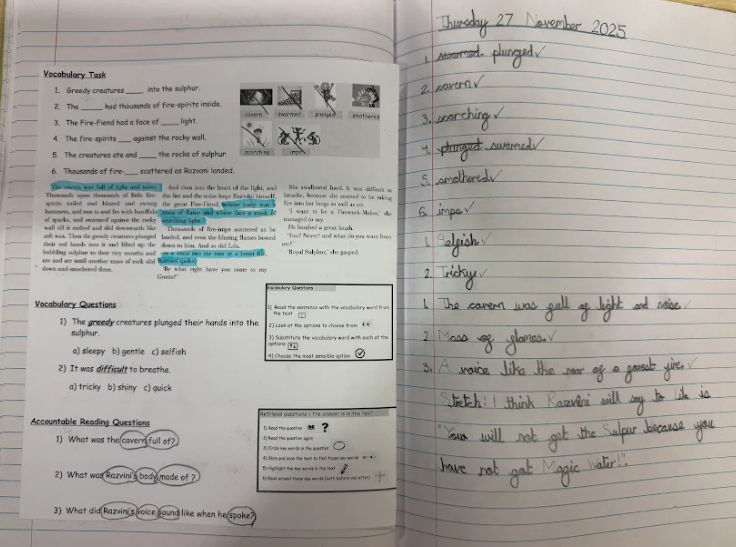 Vocabulary Task
1. Greedy creatures ____ into the sulphur.
2. The ____ had thousands of fire-spirits inside.
3. The Fire-Fiend had a face of ____ light.
4. The fire-spirits ____ against the rocky wall.
5. The creatures ate and ____ the rocks of sulphur.
6. Thousands of fire-____ scattered as Razvani landed.
cavern swarmed plunged smothered
scorching imps
The cavern was full of light and noise.
Thousands upon thousands of little fire-
spirits
humans, and ran to and fro with handfuls
of sparks, and swarmed against the rocky
wall till it melted and slid downwards like
soft wax. Then the greedy creatures plunged
their red hands into it and lifted up the
bubbling sulphur to their tiny mouths and
ate and ate until another mass of rock slid
down and smothered them.
And then into the heart of the light, and
the fire and the noise leaps Razvani himself,
the great Fire-Fiend, whose body was a
mass of flame and whose face a mask of
scorching light.
Thousands of fire-imps scattered as he
landed, and even the blazing flames bowed
down to him. And so did Lila.
In a voice like the roar of a forest fire,
Razvani spoke:
'By what right have you come to my
Grotto?'
She swallowed hard. It was difficult to
breathe, because she seemed to be taking
fire into her lungs as well as air.
'I want to be a Firework-Maker,' she
managed to say.
He laughed a great laugh.
'You? Never! And what do you want from
me?'
'Royal Sulphur,' she gasped.
Vocabulary Questions
1) The greedy creatures plunged their hands into the
sulphur.
a) sleepy b) gentle c) selfish
2) It was difficult to breathe.
a) tricky b) shiny c) quick
Vocabulary Questions
1) Read the sentence with the vocabulary word from
the text
2) Look at the options to choose from
3) Substitute the vocabulary word with each of the
options
4) Choose the most sensible option
Accountable Reading Questions
1) What was the cavern full of?
2) What was Razvini's body made of?
3) What did Razvini's voice sound like when he spoke?
Retrieval questions - the answer is in the text
1) Read the question
2) Read the question again
3) Circle key words in the question
4) Skim and scan the text to find those key words
5) Highlight the key words in the text
6) Read around those key words (both before and after)
Thursday 27 November 2025
1. swarmed plunged
2. cavern
3. scorching
4. plunged swarmed
5. smothered
6. imps
1. Selfish
2. Tricky
1. The cavern was full of light and noise.
2. Mass of flames.
3. A voice like the roar of a forest fire.
Stretch! I think Razvini will say to Lila is
"You will not get the Sulpur because you
have not got Magic Water!".